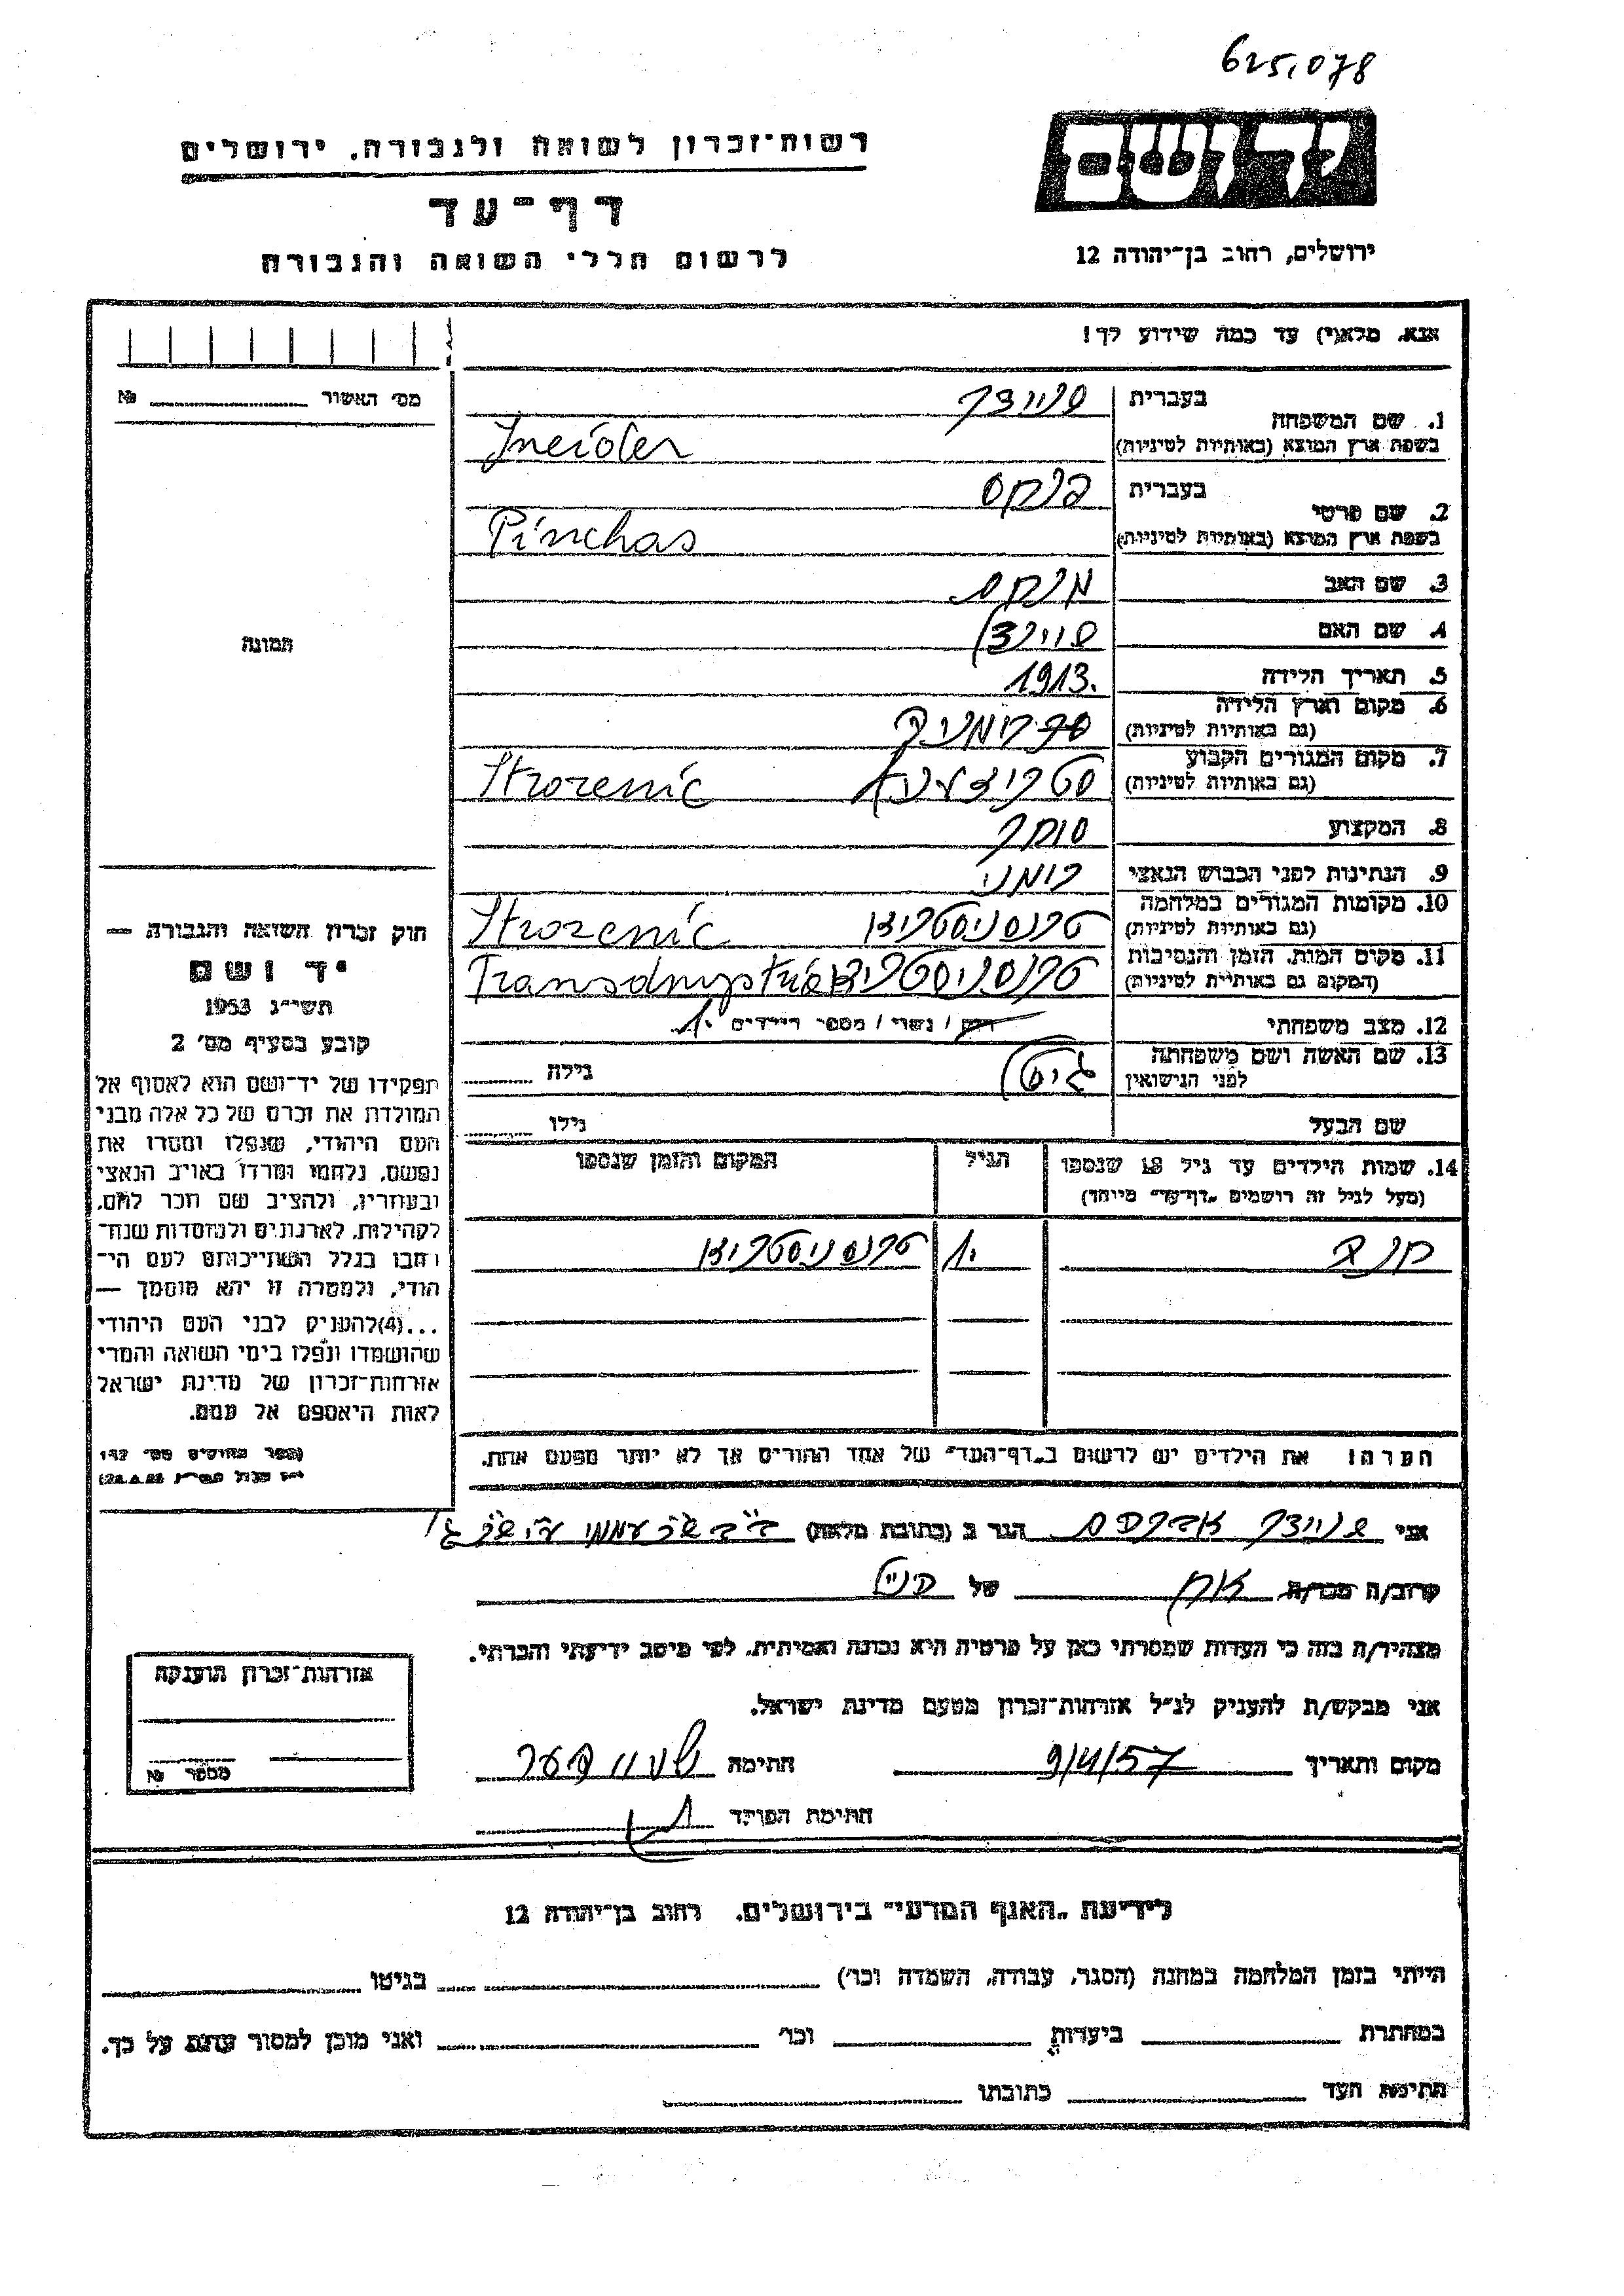 625.078
רשות־זכרון לשואה ולגבורה. ירושלים
יד ושם
דף־עד
לרשום חללי השואה והגבורה
ירושלים, רחוב בן־יהודה 12
אנא. מלא(י) עד כמה שידוע לך!
מס׳ האשור №
1. שם המשפחה
בעברית שניידר
בשפת ארץ המוצא (באותיות לטיניות) Sneider
2. שם פרטי
בעברית פנחס
בשפת ארץ המוצא (באותיות לטיניות) Pinchas
3. שם האב
4. שם האם
5. תאריך הלידה 1913.
6. מקום וארץ הלידה
(גם באותיות לטיניות)
7. מקום המגורים הקבוע
(גם באותיות לטיניות) Strozenic
8. המקצוע סוחר
9. הנתינות לפני הכבוש הנאצי רומני
10. מקומות המגורים במלחמה
(גם באותיות לטיניות) Strozenic טרנסניסטריה
11. מקום המות. הזמן והנסיבות
(המקום גם באותיות לטיניות) טרנסניסטריה
12. מצב משפחתי רווק / נשוי / מספר הילדים 1.
13. שם האשה ושם משפחתה
לפני הנישואין
גילה
שם הבעל
גילו
14. שמות הילדים עד גיל 18 שנספו
(מעל לגיל זה רושמים „דף־עד״ מיוחד)
הגיל
המקום והזמן שנספו
חנה 1. טרנסניסטריה
הערה! את הילדים יש לרשום ב„דף־העד״ של אחד ההורים אך לא יותר מפעם אחת.
תמונה
חוק זכרון השואה והגבורה —
יד ושם
תשי״ג 1953
קובע בסעיף מס׳ 2
תפקידו של יד־ושם הוא לאסוף אל
המולדת את זכרם של כל אלה מבני
העם היהודי, שנפלו ומסרו את
נפשם, נלחמו ומרדו באויב הנאצי
ובעוזריו, ולהציב שם וזכר להם,
לקהילות, לארגונים ולמוסדות שנח־
רבו בגלל השתייכותם לעם הי־
הודי, ולמטרה זו יהא מוסמך —
...(4)להעניק לבני העם היהודי
שהושמדו ונפלו בימי השואה והמרי
אזרחות־זכרון של מדינת ישראל
לאות היאספם אל עמם.
אני שניידר הגר ב (כתובת מלאה)
קרוב/ה מכר/ה אח של
מצהיר/ה בזה כי העדות שמסרתי כאן על פרטיה היא נכונה ואמיתית. לפי מיטב ידיעתי והכרתי.
אני מבקש/ת להעניק לנ״ל אזרחות־זכרון מטעם מדינת ישראל.
מקום ותאריך 9/4/57 חתימה
חתימת הפוקד
אזרחות־זכרון הוענקה
מספר №
לידיעת „האגף המדעי״ בירושלים. רחוב בן־יהודה 12
הייתי בזמן המלחמה במחנה (הסגר, עבודה, השמדה וכו׳) בגיטו
במחתרת ביערות וכו׳ ואני מוכן למסור עדות על כך.
חתימת העד כתובתו